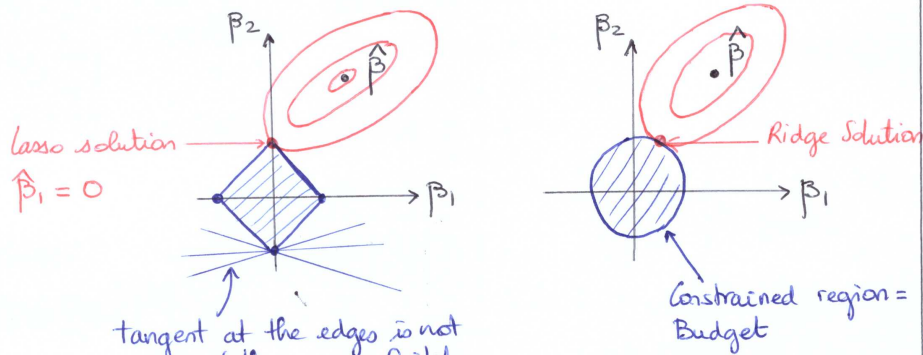 β2
β̂
Lasso solution
β̂1 = 0
β1
tangent at the edges is not
β2
β̂
Ridge Solution
β1
Constrained region =
Budget